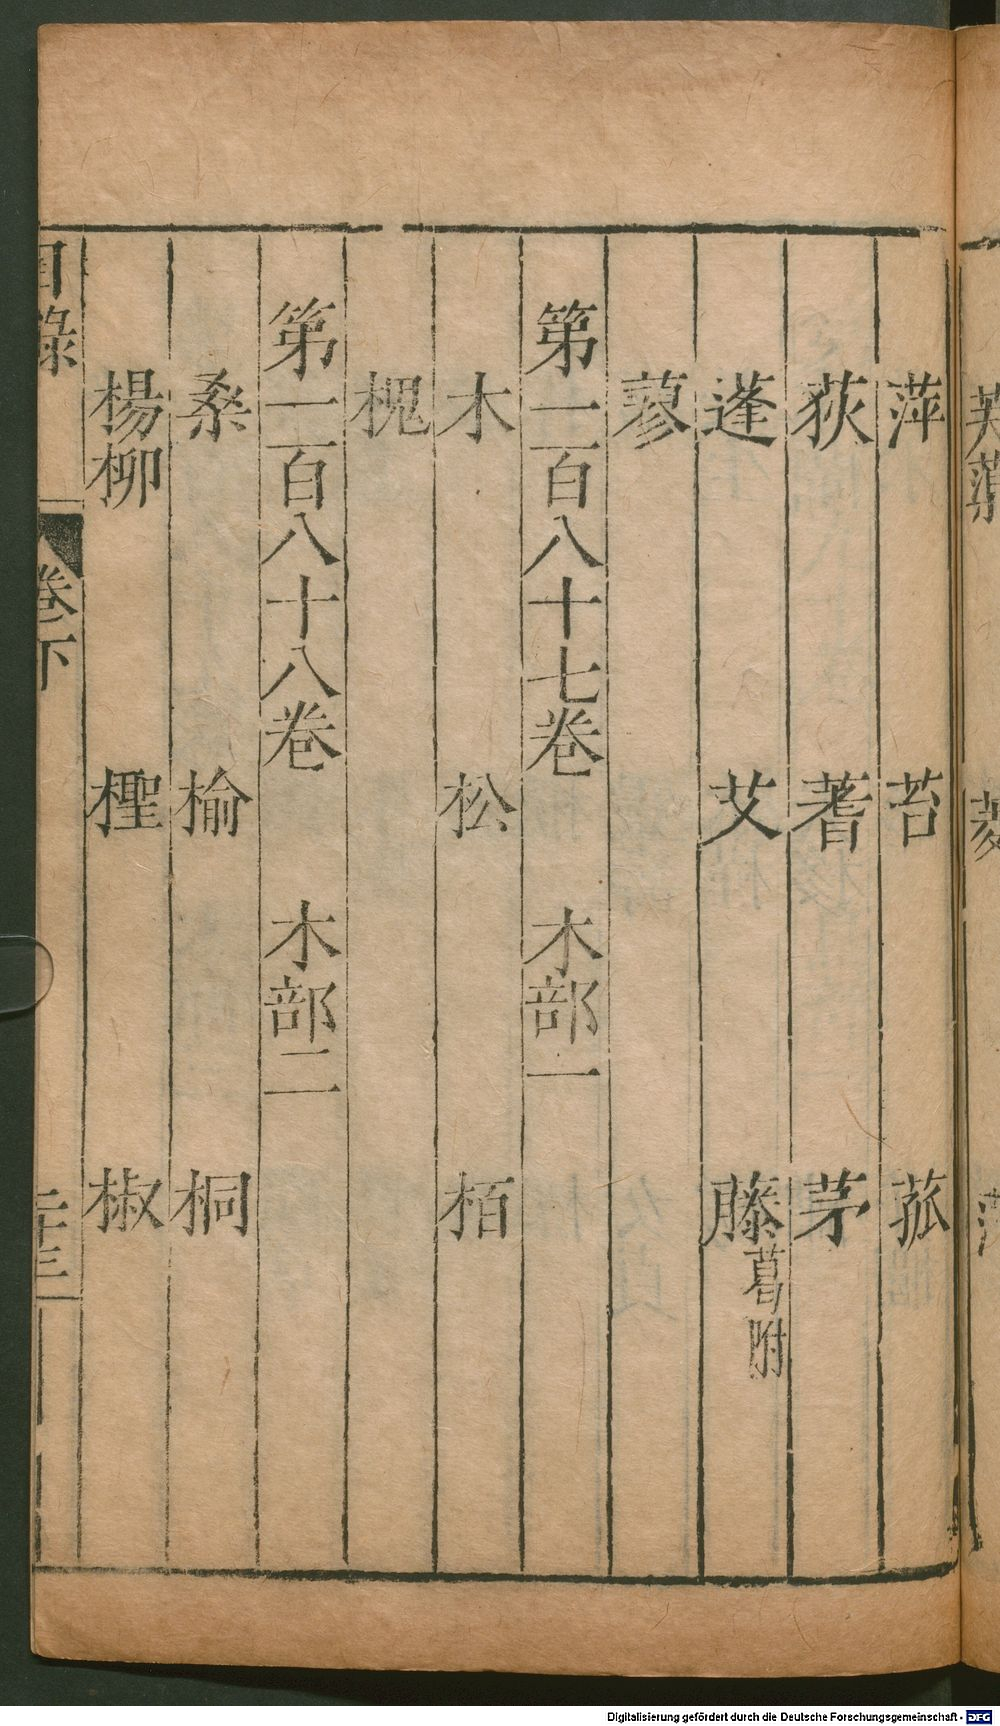 萍 苔 菰
荻 蓍 茅
蓬 艾 藤葛附
蓼
第一百八十七卷 木部一
木 松 栢
槐
第一百八十八卷 木部二
桑 榆 桐
楊柳 檉 椒
目錄 卷下 二十三
Digitalisierung gefördert durch die Deutsche Forschungsgemeinschaft - DFG